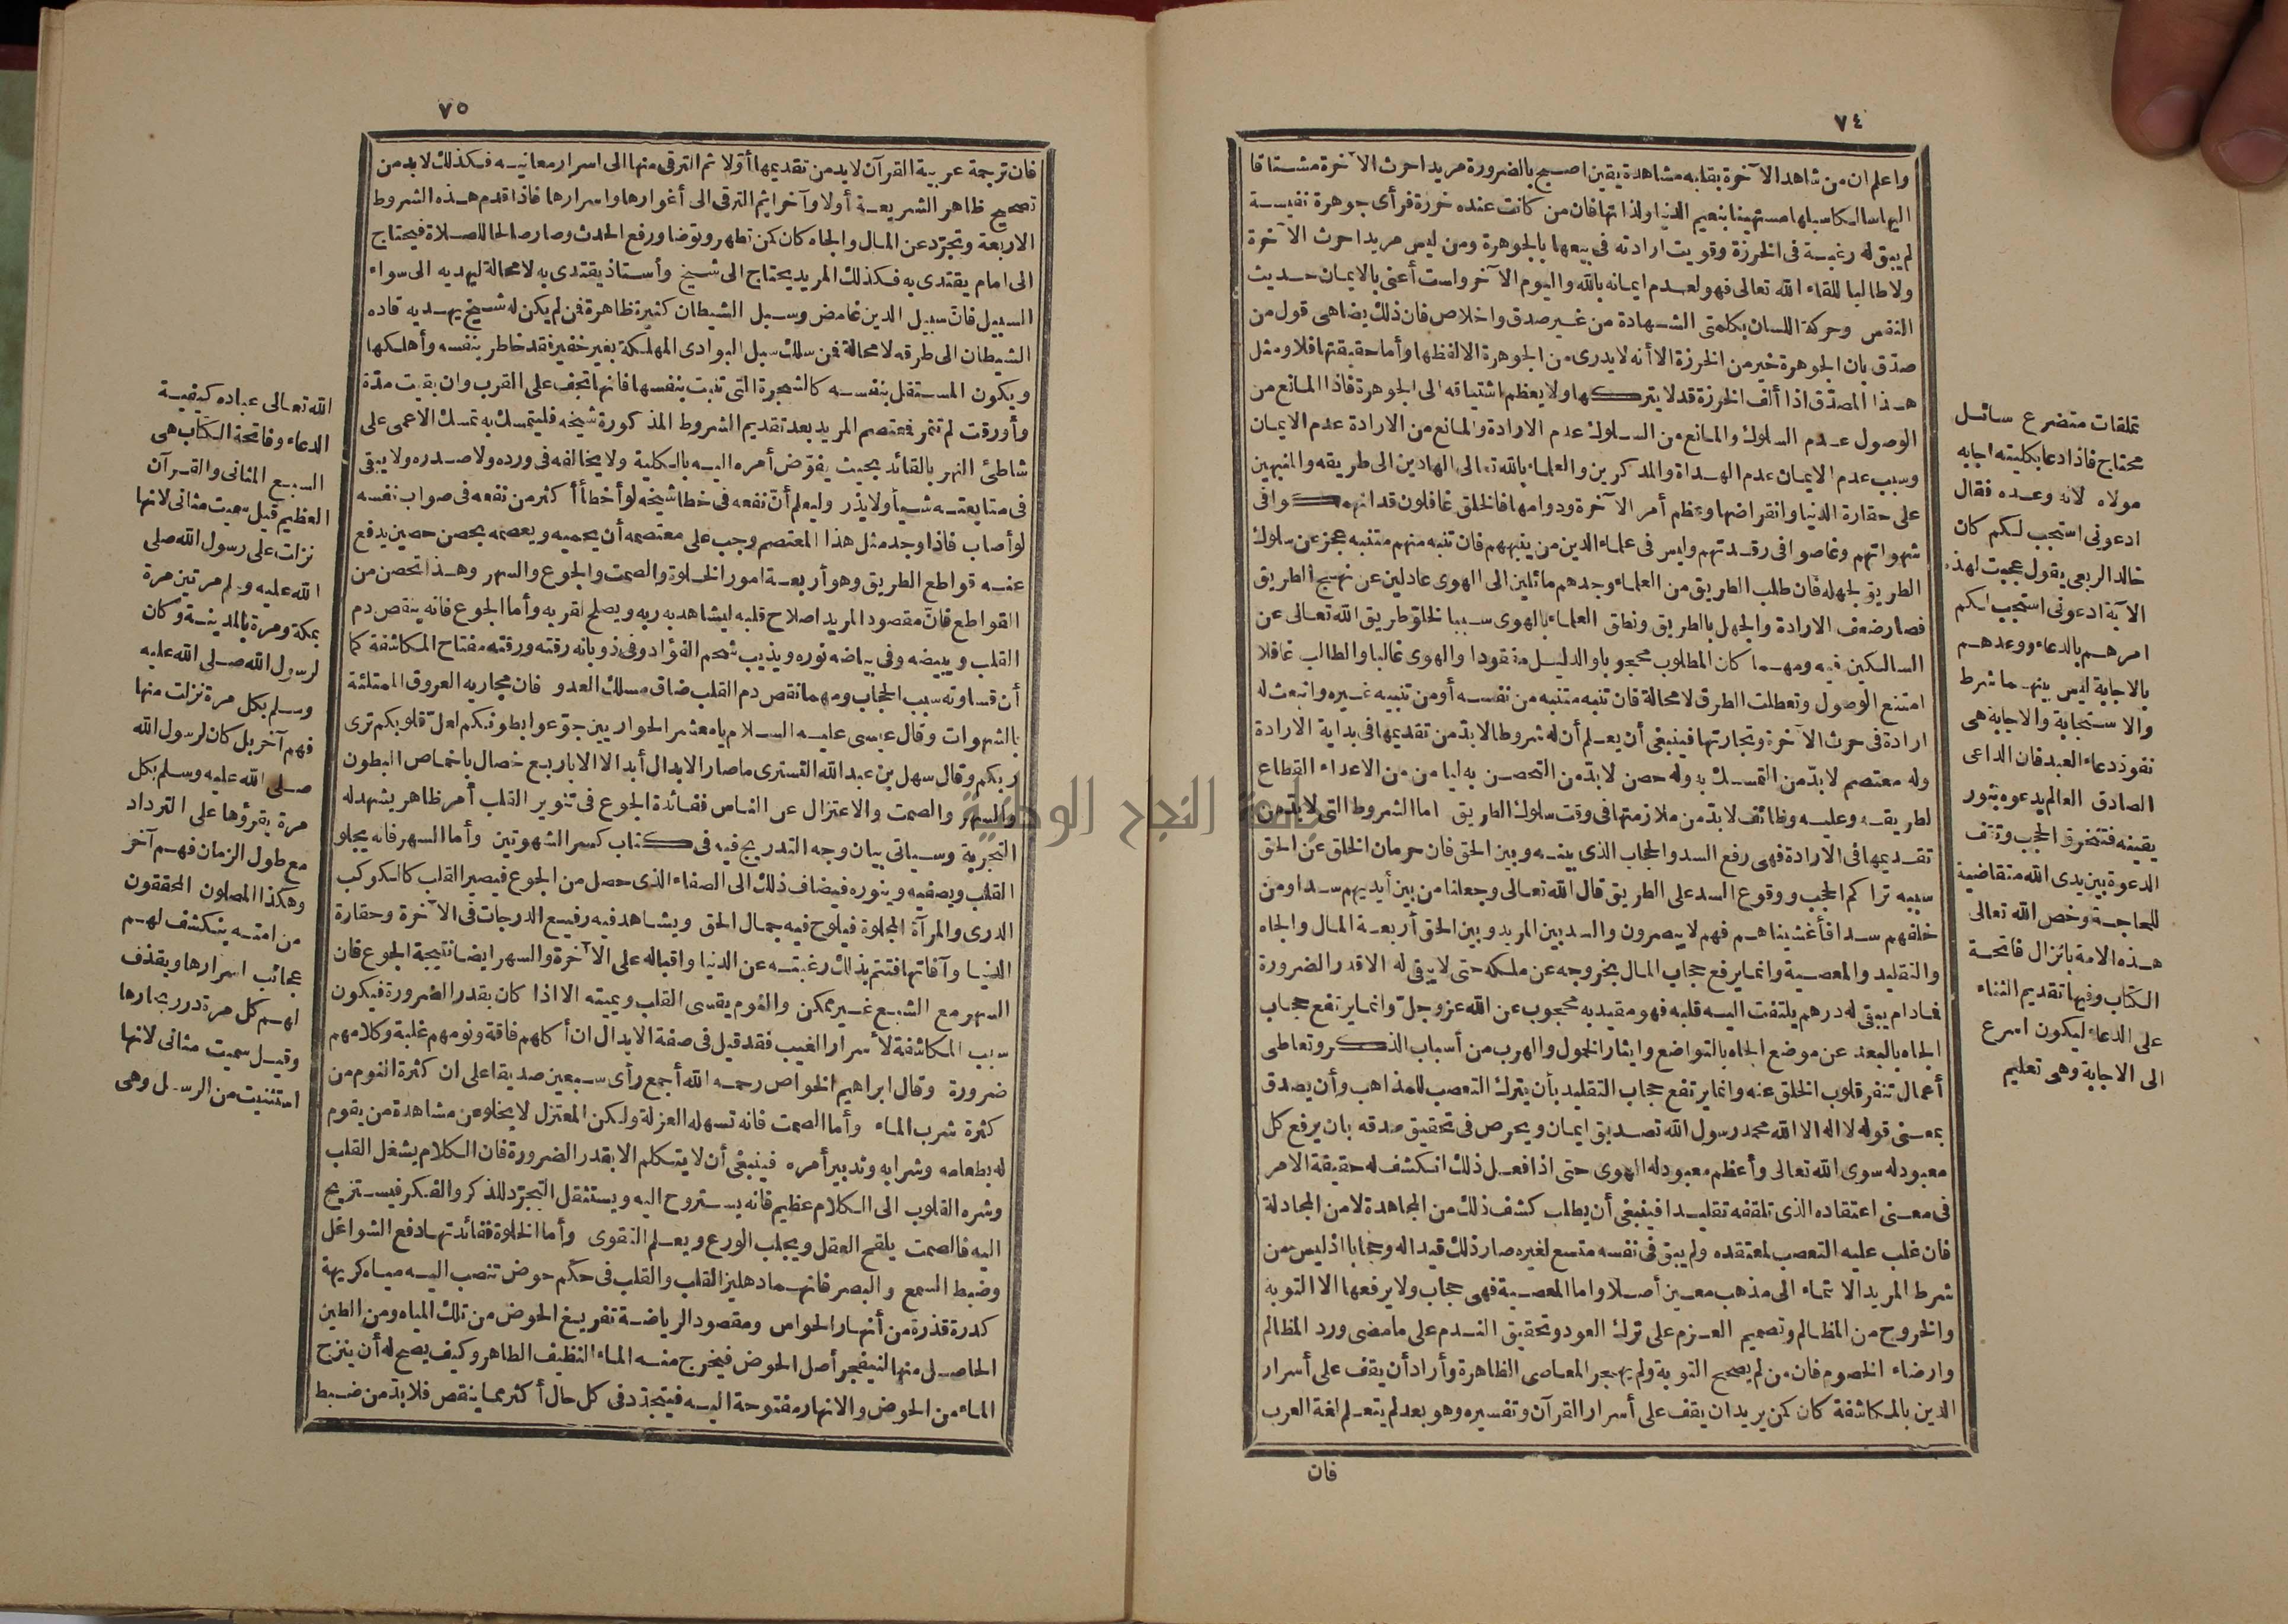 ٧٤
واعلم ان من شاهد الآخرة بقلبه مشاهدة يقين اصبح بالضرورة مريدا حرث الآخرة مشتاقا
اليها سالكا سبلها مستهينا بنعيم الدنيا ولذاتها فان من كانت عنده خرزة فرأى جوهرة نفيسة
لم يبق له رغبة فى الخرزة وقويت ارادته فى بيعها بالجوهرة ومن ليس مريدا حرث الآخرة
ولا طالبا للقاء الله تعالى فهو لعدم ايمانه بالله واليوم الآخر ولست أعنى بالايمان حديث
النفس وحركة اللسان بكلمتى الشهادة من غير صدق واخلاص فان ذلك يضاهى قول من
صدّق بان الجوهرة خير من الخرزة الا أنه لا يدرى من الجوهرة الا لفظها وأما حقيقتها فلا ومثل
هذا المصدّق اذا ألف الخرزة قد لا يتركها ولا يعظم اشتياقه الى الجوهرة فاذا المانع من
الوصول عدم السلوك والمانع من السلوك عدم الارادة والمانع من الارادة عدم الايمان
وسبب عدم الايمان عدم الهداة والمذكرين والعلماء بالله تعالى الهادين الى طريقه والمنبهين
على حقارة الدنيا وانقراضها وعظم أمر الآخرة ودوامها فالخلق غافلون قد انهمكوا فى
شهواتهم وغاصوا فى رقدتهم وليس فى علماء الدين من ينبههم فان تنبه منهم متنبه عجز عن سلوك
الطريق لجهله فان طلب الطريق من العلماء وجدهم مائلين الى الهوى عادلين عن نهج الطريق
فصار ضعف الارادة والجهل بالطريق ونطق العلماء بالهوى سببا لخلو طريق الله تعالى عن
السالكين فيه ومهما كان المطلوب محجوبا والدليل مفقودا والهوى غالبا والطالب غافلا
امتنع الوصول وتعطلت الطرق لا محالة فان تنبه متنبه من نفسه أو من تنبيه غيره وانبعث له
ارادة فى حرث الآخرة وتجارتها فينبغى أن يعلم أن له شروطا لا بدّ من تقديمها فى بداية الارادة
وله معتصم لا بدّ من التمسك به وله حصن لا بدّ من التحصن به ليأمن من الاعداء القطاع
لطريقه وعليه وظائف لا بدّ من ملازمتها فى وقت سلوك الطريق اما الشروط التى لا بدّ من
تقديمها فى الارادة فهى رفع السد والحجاب الذى بينه وبين الحق فان حرمان الخلق عن الحق
سببه تراكم الحجب ووقوع السد على الطريق قال الله تعالى وجعلنا من بين أيديهم سدا ومن
خلفهم سدا فأغشيناهم فهم لا يبصرون والسد بين المريد وبين الحق أربعة المال والجاه
والتقليد والمعصية وانما يرفع حجاب المال بخروجه عن ملكه حتى لا يبقى له الا قدر الضرورة
فما دام يبقى له درهم يلتفت اليه قلبه فهو مقيد به محجوب عن الله عز وجلّ وانما يرتفع حجاب
الجاه بالبعد عن موضع الجاه بالتواضع وايثار الخمول والهرب من أسباب الذكر وتعاطى
أعمال تنفر قلوب الخلق عنه وانما يرتفع حجاب التقليد بأن يترك التعصب للمذاهب وأن يصدق
بمعنى قوله لا اله الا الله محمد رسول الله تصديق ايمان ويحرص فى تحقيق صدقه بان يرفع كل
معبود له سوى الله تعالى وأعظم معبود له الهوى حتى اذا فعل ذلك انكشف له حقيقة الامر
فى معنى اعتقاده الذى تلقفه تقليدا فينبغى أن يطلب كشف ذلك من المجاهدة لا من المجادلة
فان غلب عليه التعصب لمعتقده ولم يبق فى نفسه متسع لغيره صار ذلك قيدا له وحجابا اذ ليس من
شرط المريد الانتماء الى مذهب معين أصلا واما المعصية فهى حجاب ولا يرفعها الا التوبة
والخروج من المظالم وتصميم العزم على ترك العود وتحقيق الندم على ما مضى ورد المظالم
وارضاء الخصوم فان من لم يصحح التوبة ولم يهجر المعاصى الظاهرة وأراد أن يقف على أسرار
الدين بالمكاشفة كان كمن يريد ان يقف على أسرار القرآن وتفسيره وهو بعد لم يتعلم لغة العرب
فان
تملقات متضرع سائل
محتاج فاذا دعا بكليته اجابه
مولاه لانه وعده فقال
ادعونى استجب لكم كان
خالد الربعى يقول عجبت لهذه
الآية ادعونى استجب لكم
امرهم بالدعاء ووعدهم
بالاجابة ليس بينهما شرط
والاستجابة والاجابة هى
نفوذ دعاء العبد فان الداعى
الصادق العالم يدعوه بنور
يقينه فتنخرق الحجب وتقف
الدعوة بين يدى الله متقاضية
للحاجة وخص الله تعالى
هذه الامة بانزال فاتحة
الكتاب وفيها تقديم الثناء
على الدعاء ليكون اسرع
الى الاجابة وهى تعليم
٧٥
فان ترجمة عربية القرآن لا بد من تقديمها أوّلا ثم الترقى منها الى اسرار معانيه فكذلك لا بد من
تصحيح ظاهر الشريعة أولا وآخرا ثم الترقى الى أغوارها واسرارها فاذا قدم هذه الشروط
الاربعة وتجرّد عن المال والجاه كان كمن تطهر وتوضا ورفع الحدث وصار صالحا للصلاة فيحتاج
الى امام يقتدى به فكذلك المريد يحتاج الى شيخ وأستاذ يقتدى به لا محالة ليهديه الى سواء
السبيل فان سبيل الدين غامض وسبل الشيطان كثيرة ظاهرة فمن لم يكن له شيخ يهديه قاده
الشيطان الى طرقه لا محالة فمن سلك سبل البوادى المهلكة بغير خفير فقد خاطر بنفسه وأهلكها
ويكون المستقل بنفسه كالشجرة التى تنبت بنفسها فانها تجف على القرب وان بقيت مدّة
وأورقت لم تثمر فمعتصم المريد بعد تقديم الشروط المذكورة شيخه فليتمسك به تمسك الاعمى على
شاطئ النهر بالقائد بحيث يفوّض أمره اليه بالكلية ولا يخالفه فى ورده ولا صدره ولا يبقى
فى متابعته شيأ ولا يذر وليعلم أن نفعه فى خطا شيخه لو أخطأ أكثر من نفعه فى صواب نفسه
لو أصاب فاذا وجد مثل هذا المعتصم وجب على معتصمه أن يحميه ويعصمه بحصن حصين يدفع
عنه قواطع الطريق وهو أربعة امور الخلوة والصمت والجوع والسهر وهذا تحصن من
القواطع فان مقصود المريد اصلاح قلبه ليشاهد به ربه ويصلح لقربه وأما الجوع فانه ينقص دم
القلب ويبيضه وفى بياضه نوره ويذيب شحم الفؤاد وفى ذوبانه رقته ورقته مفتاح المكاشفة كما
أن قساوته سبب الحجاب ومهما نقص دم القلب ضاق مسلك العدو فان مجاريه العروق الممتلئة
بالشهوات وقال عيسى عليه السلام يا معشر الحواريين جوّعوا بطونكم لعلّ قلوبكم ترى
ربكم وقال سهل بن عبد الله التسترى ما صار الابدال أبدالا الا باربع خصال باخماص البطون
والسهر والصمت والاعتزال عن الناس ففائدة الجوع فى تنوير القلب أمر ظاهر يشهد له
التجربة وسياتى بيان وجه التدريج فيه فى كتاب كسر الشهوتين وأما السهر فانه يجلو
القلب ويصفيه وينوره فيضاف ذلك الى الصفاء الذى حصل من الجوع فيصير القلب كالكوكب
الدرى والمرآة المجلوة فيلوح فيه جمال الحق ويشاهد فيه رفيع الدرجات فى الآخرة وحقارة
الدنيا وآفاتها فتتم بذلك رغبته عن الدنيا واقباله على الآخرة والسهر ايضا نتيجة الجوع فان
السهر مع الشبع غير ممكن والنوم يقسى القلب ويميته الا اذا كان بقدر الضرورة فيكون
سبب المكاشفة لأسرار الغيب فقد قيل فى صفة الابدال ان أكلهم فاقة ونومهم غلبة وكلامهم
ضرورة وقال ابراهيم الخواص رحمه الله أجمع رأى سبعين صديقا على ان كثرة النوم من
كثرة شرب الماء وأما الصمت فانه تسهله العزلة ولكن المعتزل لا يخلو عن مشاهدة من يقوم
له بطعامه وشرابه وتدبير أمره فينبغى أن لا يتكلم الا بقدر الضرورة فان الكلام يشغل القلب
وشره القلوب الى الكلام عظيم فانه يستروح اليه ويستثقل التجرّد للذكر والفكر فيستريح
اليه فالصمت يلقح العقل ويجلب الورع ويعلم التقوى وأما الخلوة ففائدتها دفع الشواغل
وضبط السمع والبصر فانهما دهليز القلب والقلب فى حكم حوض تنصب اليه مياه كريهة
كدرة قذرة من أنهار الحواس ومقصود الرياضة تفريغ الحوض من تلك المياه ومن الطين
الحاصل منها لينفجر أصل الحوض فيخرج منه الماء النظيف الطاهر وكيف يصح له أن ينزح
الماء من الحوض والانهار مفتوحة اليه فيتجدّد فى كل حال أكثر مما ينقص فلا بدّ من ضبط
الله تعالى عباده كيفية
الدعاء وفاتحة الكتاب هى
السبع المثانى والقرآن
العظيم قيل سميت مثانى لانها
نزلت على رسول الله صلى
الله عليه وسلم مرتين مرة
بمكة ومرة بالمدينة وكان
لرسول الله صلى الله عليه
وسلم بكل مرة نزلت منها
فهم آخر بل كان لرسول الله
صلى الله عليه وسلم بكل
مرة يقرؤها على الترداد
مع طول الزمان فهم آخر
وهكذا المصلون المحققون
من امته ينكشف لهم
عجائب اسرارها ويقذف
لهم كل مرة درر بحارها
وقيل سميت مثانى لانها
استثنيت من الرسل وهى
جامعة النجاح الوطنية